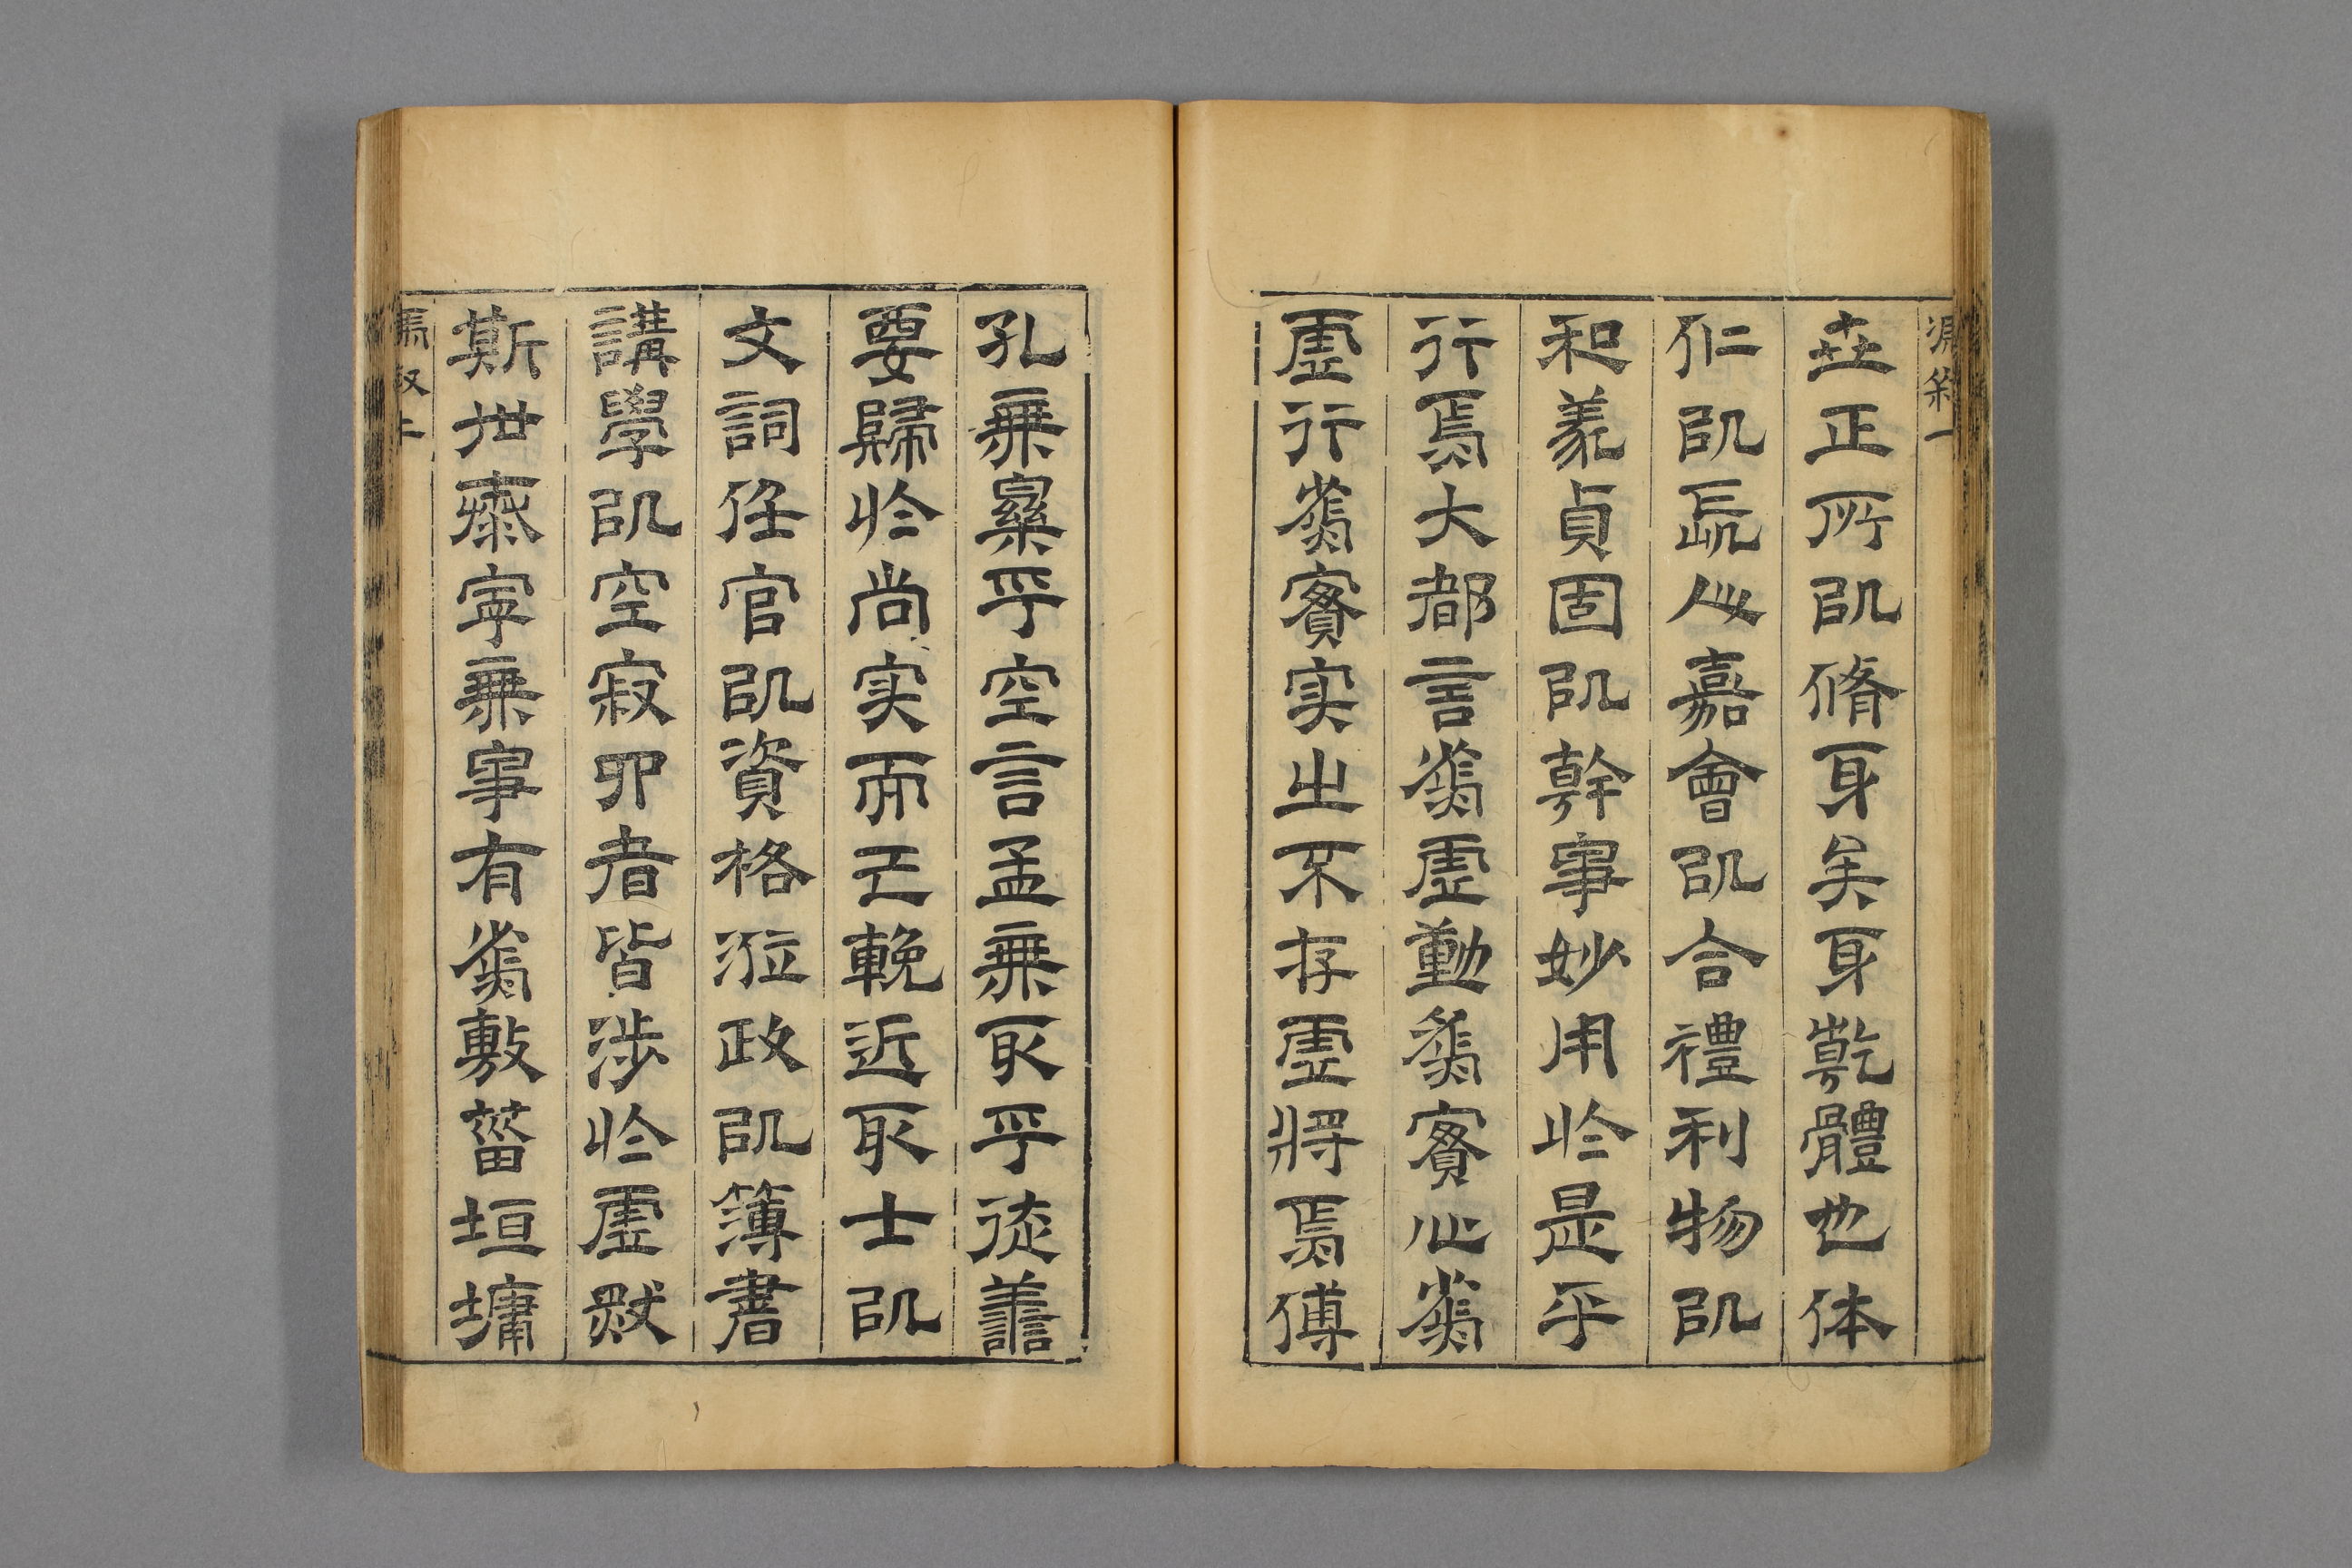 正所以脩身矣身乾體也体
仁以長人嘉會以合禮利物以
和義貞固以幹事妙用於是乎
行焉大都言為虛動為實心為
虛行為實实之不存虛將焉傅
孔無乎空言孟無取乎徒善
要歸於尚实而已輓近取士以
文詞任官以資格涖政以簿書
講學以空寂四者皆涉於虛
斯世泰寧無事有為敷菑垣墉